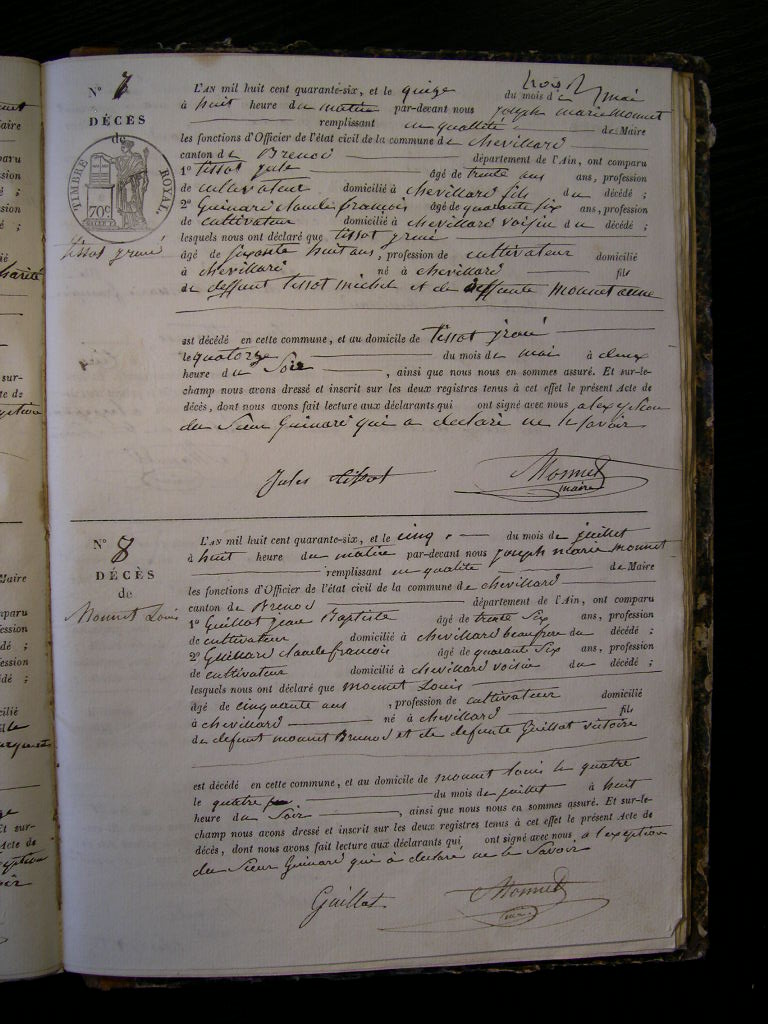 N° 7
DÉCÈS
de
TIMBRE ROYAL
70c
tissot jréné
L'AN mil huit cent quarante-six, et le quinze du mois de mai
à huit heure du matin par-devant nous joseph marie Monnet
remplissant en quallité de Maire
les fonctions d'Officier de l'état civil de la commune de chevillard
canton de Brenod département de l'Ain, ont comparu
1° tissot jule âgé de trente ans ans, profession
de cultivateur domicilié à chevillard fils du décédé ;
2° Guinard claude françois âgé de quarante six ans, profession
de cultivateur domicilié à chevillard voisin du décédé ;
lesquels nous ont déclaré que tissot jréné
âgé de soixante huit ans, profession de cultivateur domicilié
à chevillard né à chevillard fils
de deffunt tissot michel et de deffunte monnet anne
est décédé en cette commune, et au domicile de tissot jréné
le quatorze du mois de mai à deux
heure du Soir, ainsi que nous nous en sommes assuré. Et sur-le-
champ nous avons dressé et inscrit sur les deux registres tenus à cet effet le présent Acte de
décès, dont nous avons fait lecture aux déclarants qui ont signé avec nous
du Sieur Guinard qui a declaré ne le savoir
Jules tissot Monnet
maire
N° 8
DÉCÈS
de
Monnet Louis
L'AN mil huit cent quarante-six, et le cinq du mois de juillet
à huit heure du matin par-devant nous joseph marie monnet
remplissant en qualité de Maire
les fonctions d'Officier de l'état civil de la commune de chevillard
canton de Brenod département de l'Ain, ont comparu
1° Guillot jean Baptiste âgé de trente Six ans, profession
de cultivateur domicilié à chevillard beaufrere du décédé ;
2° Guillard claude francois âgé de quarante Six ans, profession
de cultivateur domicilié à chevillard voisin du décédé ;
lesquels nous ont déclaré que monnet Louis
âgé de cinquante ans, profession de cultivateur domicilié
à chevillard né à chevillard fils
de defunt monnet Brunod et de defunte Guillot victoire
est décédé en cette commune, et au domicile de monnet louis le quatre
le quatre du mois de juillet à huit
heure du Soir, ainsi que nous nous en sommes assuré. Et sur-le-
champ nous avons dressé et inscrit sur les deux registres tenus à cet effet le présent Acte de
décès, dont nous avons fait lecture aux déclarants qui ont signé avec nous a l'exception
du Sieur Guinard qui à declaré ne le Savoir
Guillot Monnet